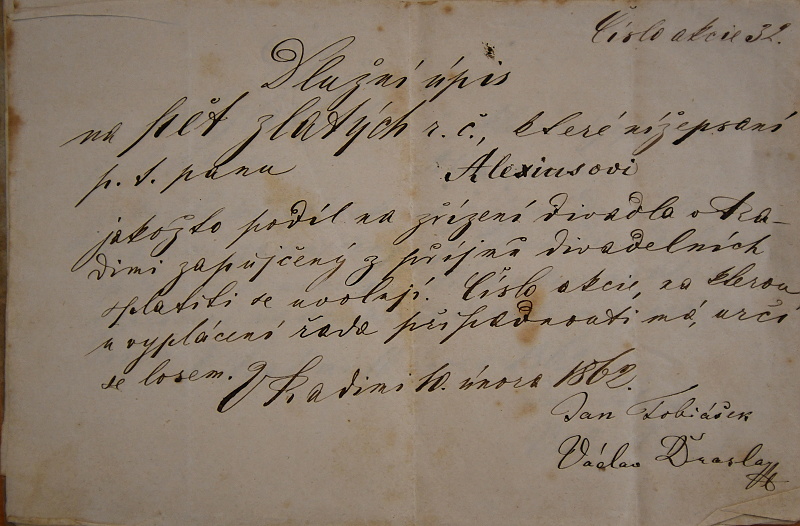 Číslo akcie 32.
Dlužní úpis
na pět zlatých r. č., které nížepsaní
p. t. panu Alexiusovi
jakožto podíl na zřízení divadla v Ra-
dimi zapůjčený z příjmů divadelních
splatiti se uvolují. Číslo akcie, na kterou
u vyplácení řada připadnouti má, určí
se losem. V Radimi 10. února 1862.
Jan Tobiášek
Václav